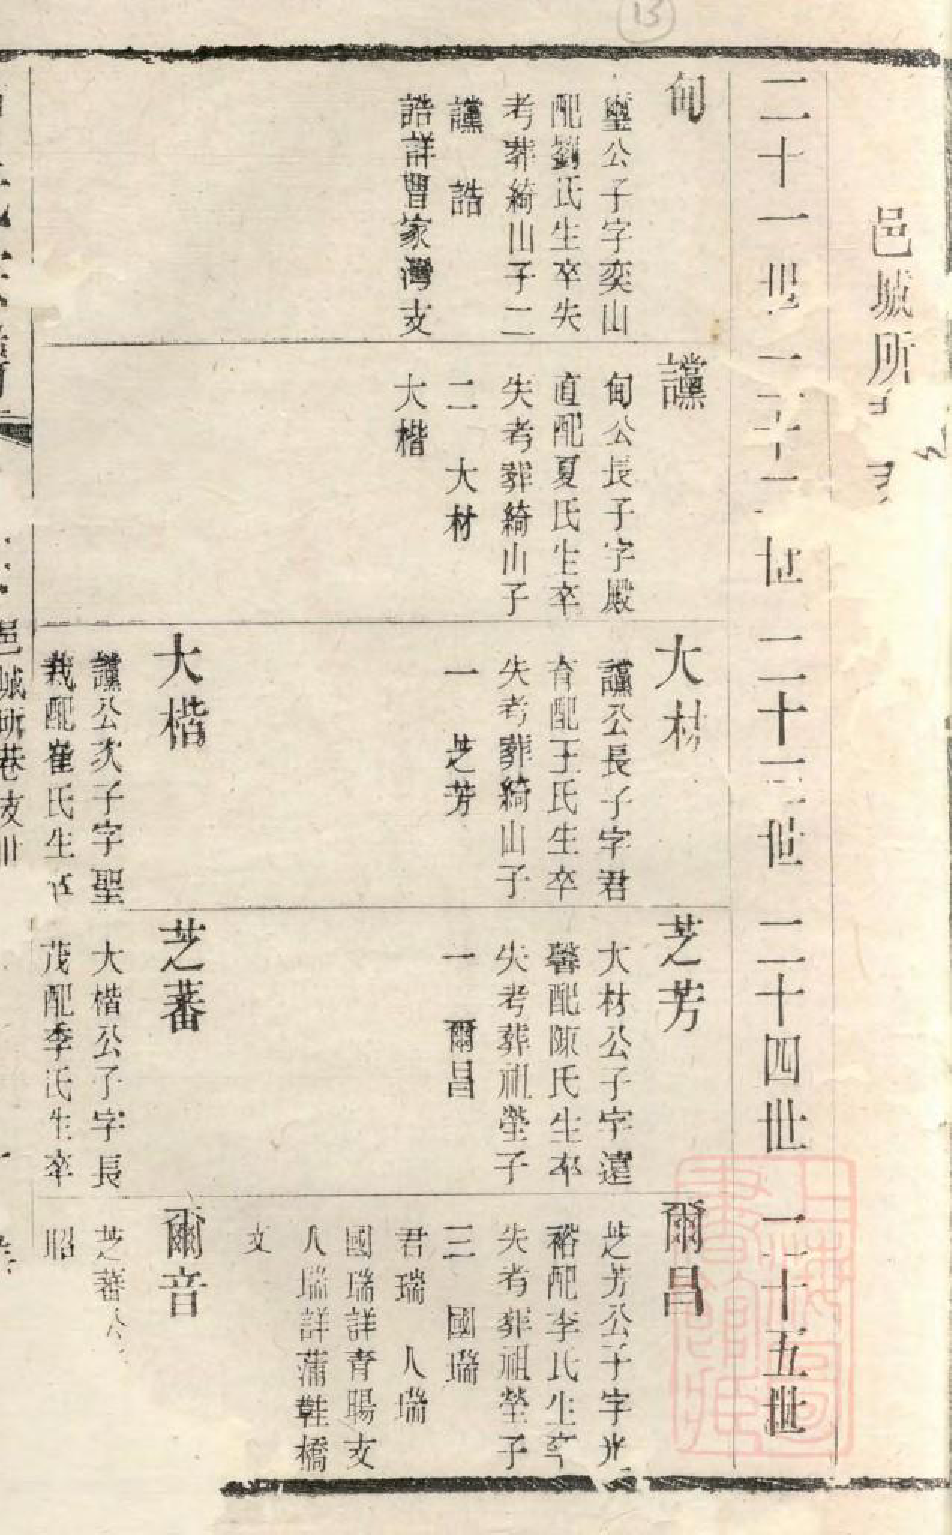 邑城所
二十一世
二十二世
二十三世
二十四世
二十五世
甸
璽公子字奕山
配劉氏生卒失
考葬綺山子二
讜 誥
誥詳曹家灣支
讜
甸公長子字殿
直配夏氏生卒
失考葬綺山子
二 大材
大楷
大材
讜公長子字君
育配王氏生卒
失考葬綺山子
一 芝芳
大楷
讜公次子字聖
裁配崔氏生卒
芝芳
大材公子字遠
馨配陳氏生卒
失考葬祖塋子
一 爾昌
芝蕃
大楷公子字長
茂配李氏生卒
爾昌
芝芳公子字光
裕配李氏生卒
失考葬祖塋子
三 國瑞
君瑞 人瑞
國瑞詳青暘支
人瑞詳蒲鞋橋
支
爾音
芝蕃公
昭
邑城所巷支